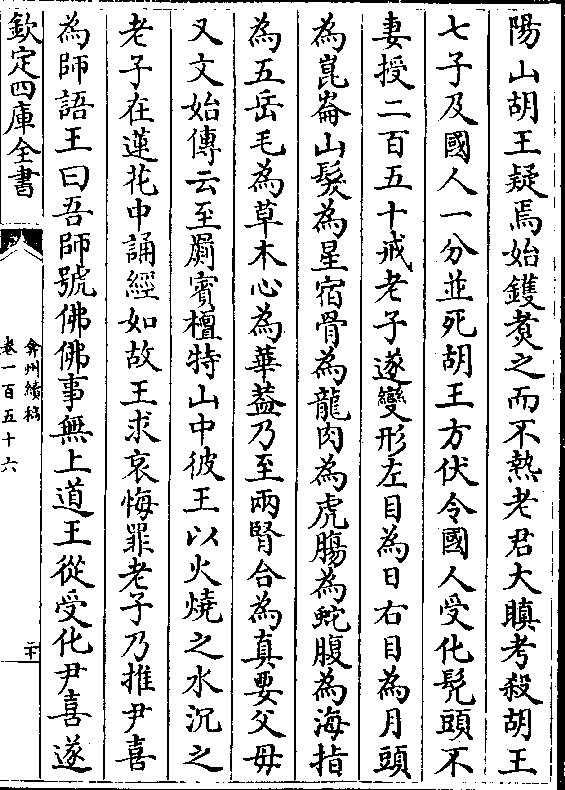 陽山胡王疑焉始鑊煑之而不熱老君大瞋考殺胡王
七子及國人一分並死胡王方伏令國人受化髠頭不
妻授二百五十戒老子遂變形左目為日右目為月頭
為崑崙山髪為星宿骨為龍肉為虎腸為蛇腹為海指
為五岳毛為草木心為華葢乃至兩腎合為真要父母
又文始傳云至罽賓檀特山中彼王以火燒之水沉之
老子在蓮花中誦經如故王求哀悔罪老子乃推尹喜
為師語王曰吾師號佛佛事無上道王從受化尹喜遂
欽定四庫全書
弇州續稿
卷一百五十六
二十